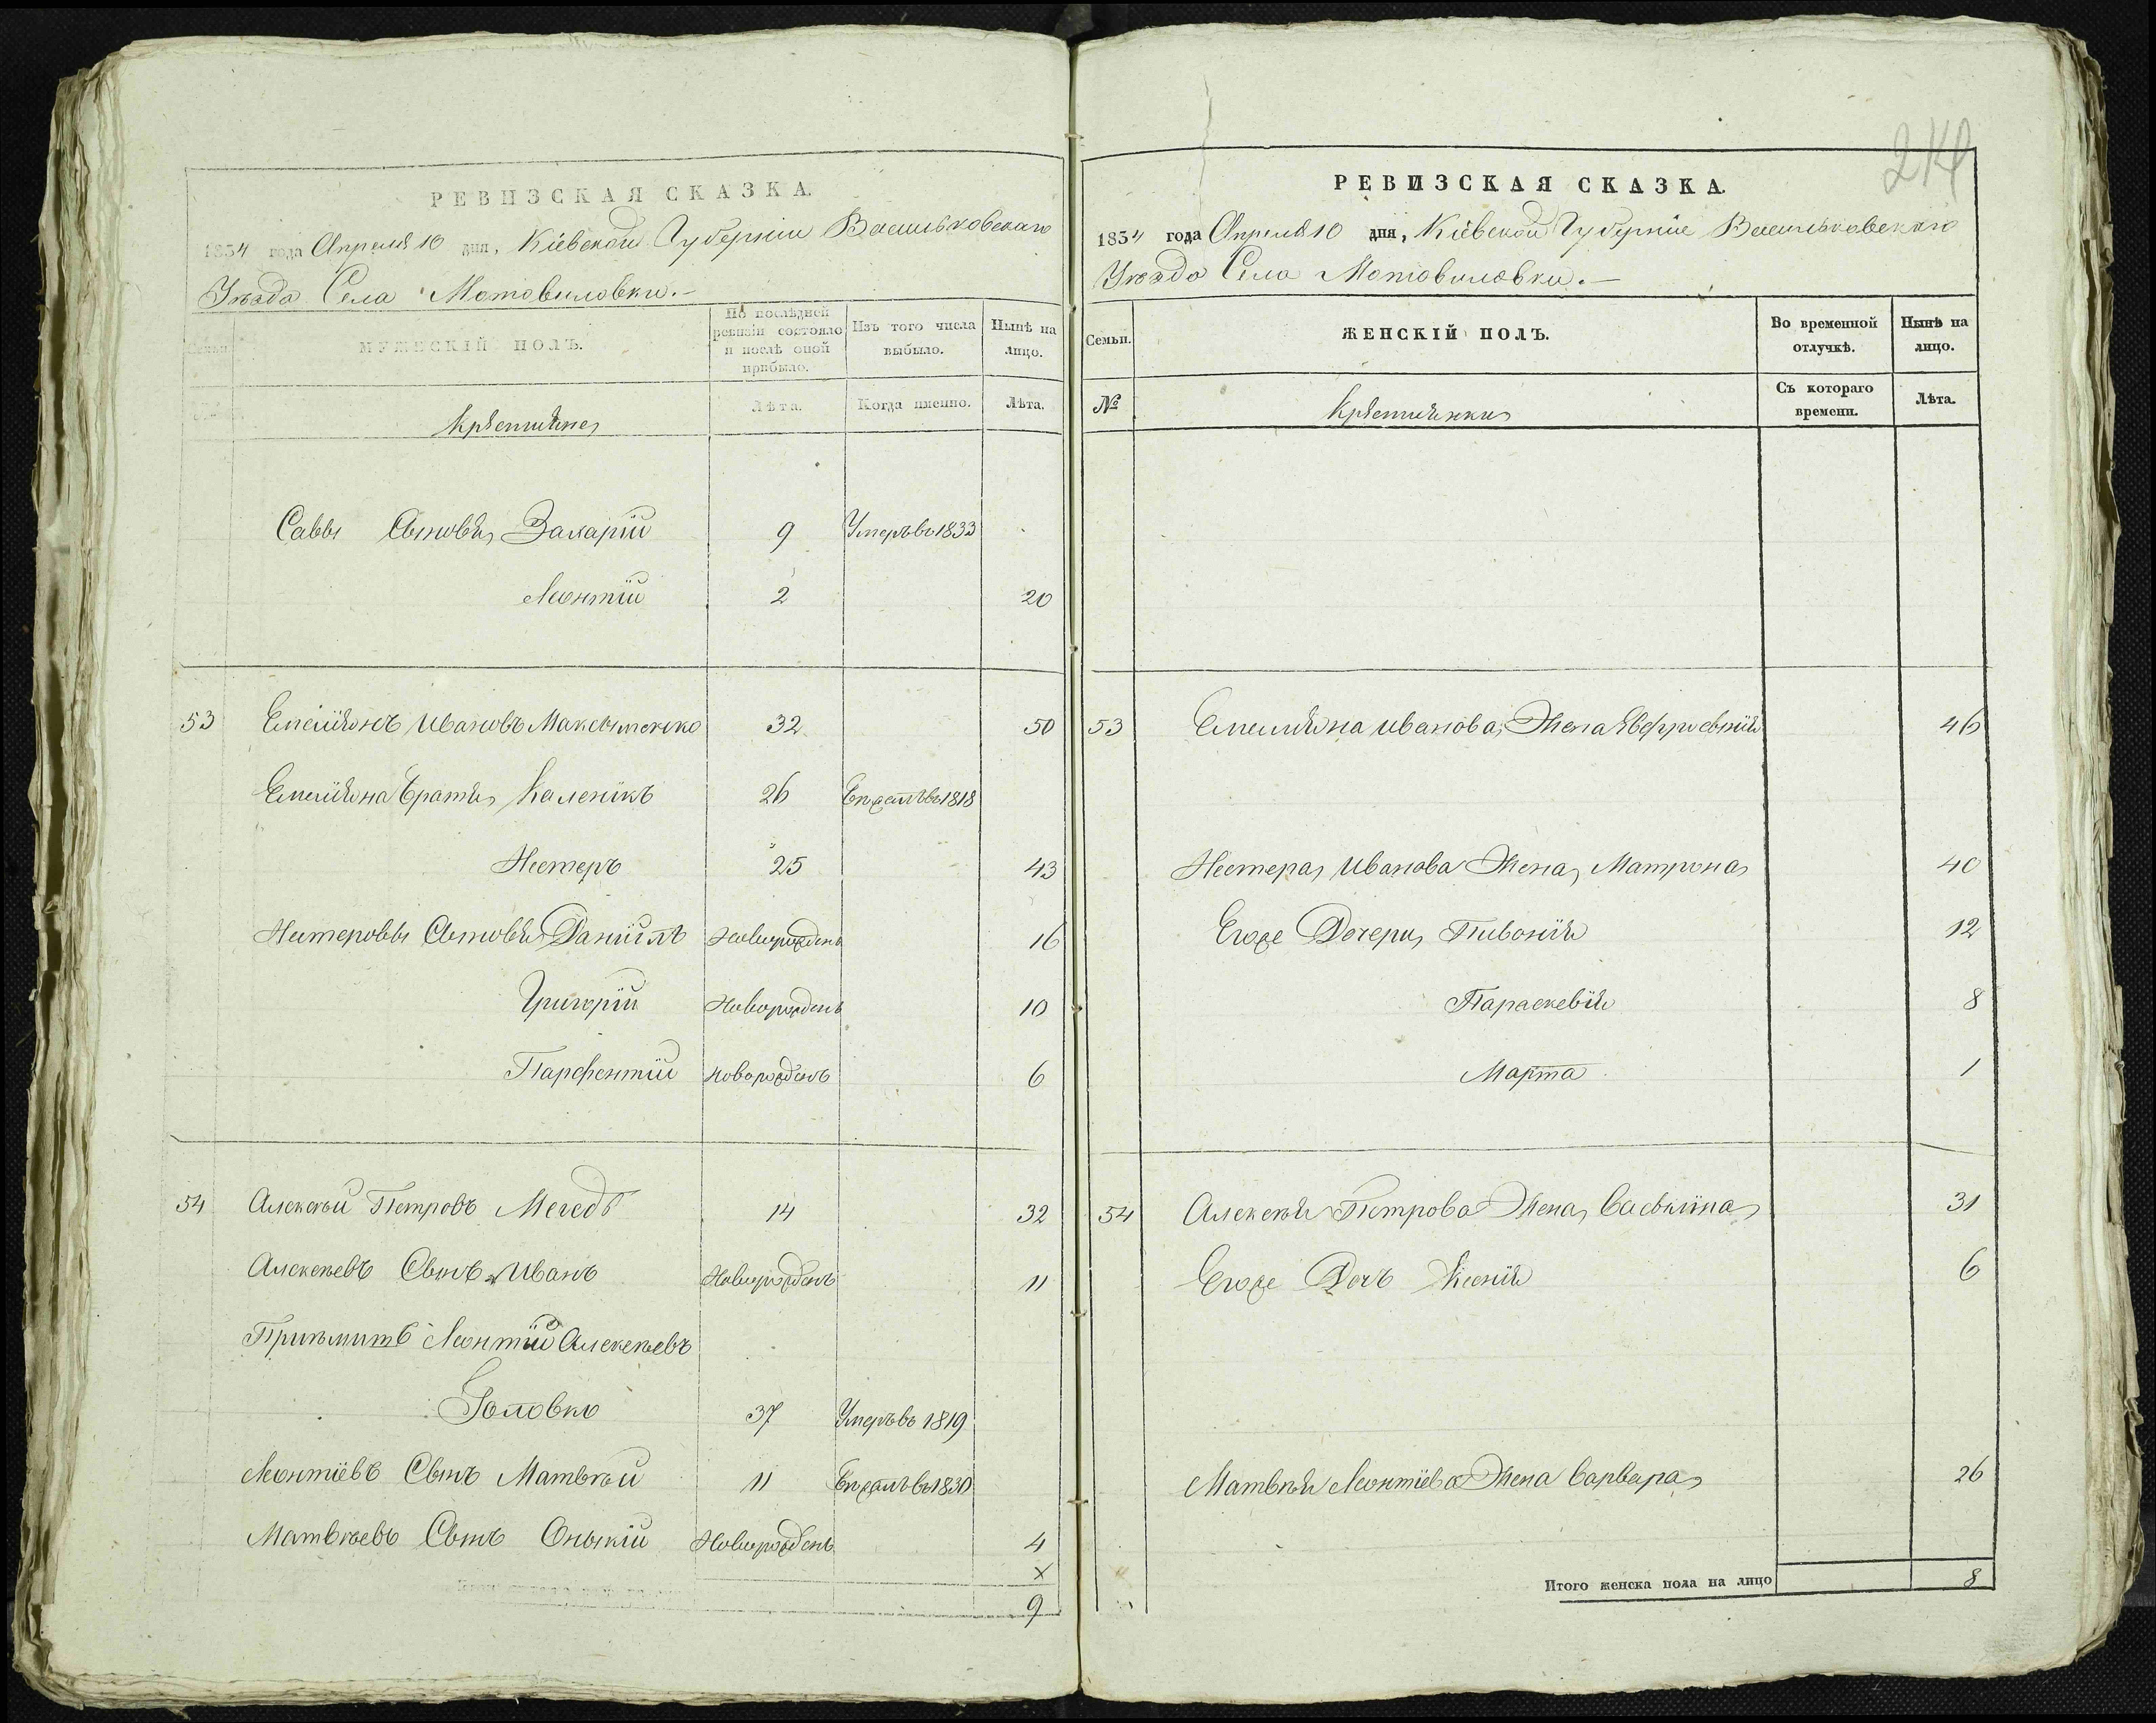 РЕВИЗСКАЯ СКАЗКА.
1834 года Апреля 10 дня, Кіевской Губерніи Васильковскаго
Уѣзда Села Мотовиловки.-
Семьи.
МУЖЕСКІЙ ПОЛЪ.
По послѣдней ревизіи состояло и послѣ оной прибыло.
Изъ того числа выбыло.
Нынѣ на лицо.
Крестьяне
Лѣта.
Когда именно.
Лѣта.
Саввы Сыновья Захарій 9 Умеръ въ 1833
Леонтій 2 20
53 Емельянъ Ивановъ Максыменко 32 50
Емельяна Братья Каленикъ 26 въ 1818
Нестеръ 25 43
Нестеровы Сыновья Даніилъ Новорожденъ 16
Григорій Новорожденъ 10
Парфентій новорожденъ 6
54 Алексѣй Петровъ Мегедъ 14 32
Алексѣевъ Сынъ Иванъ Новорожденъ 11
Пріимитъ Леонтій Алексѣевъ
Головко 37 Умеръ въ 1819
Леонтіевъ Сынъ Матвѣй 11 въ 1830
Матвѣевъ Сынъ Онискій Новорожденъ 4
х
9
214
РЕВИЗСКАЯ СКАЗКА.
1834 года Апреля 10 дня, Кіевской Губерніи Васильковскаго
Уѣзда Села Мотовиловки.-
Семьи.
ЖЕНСКІЙ ПОЛЪ.
Во временной отлучкѣ.
Нынѣ на лицо.
№
Крестьянки
Съ котораго времени.
Лѣта.
53 Емельяна Иванова Жена Явфросынія 46
Нестера Иванова Жена Матрона 40
Егоже Дочери Пивонія 12
Параскевія 8
Марта 1
54 Алексѣя Петрова Жена Васылина 31
Егоже Дочъ Ксенія 6
Матвѣя Леонтіева Жена Варвара 26
Итого женска пола на лицо 8